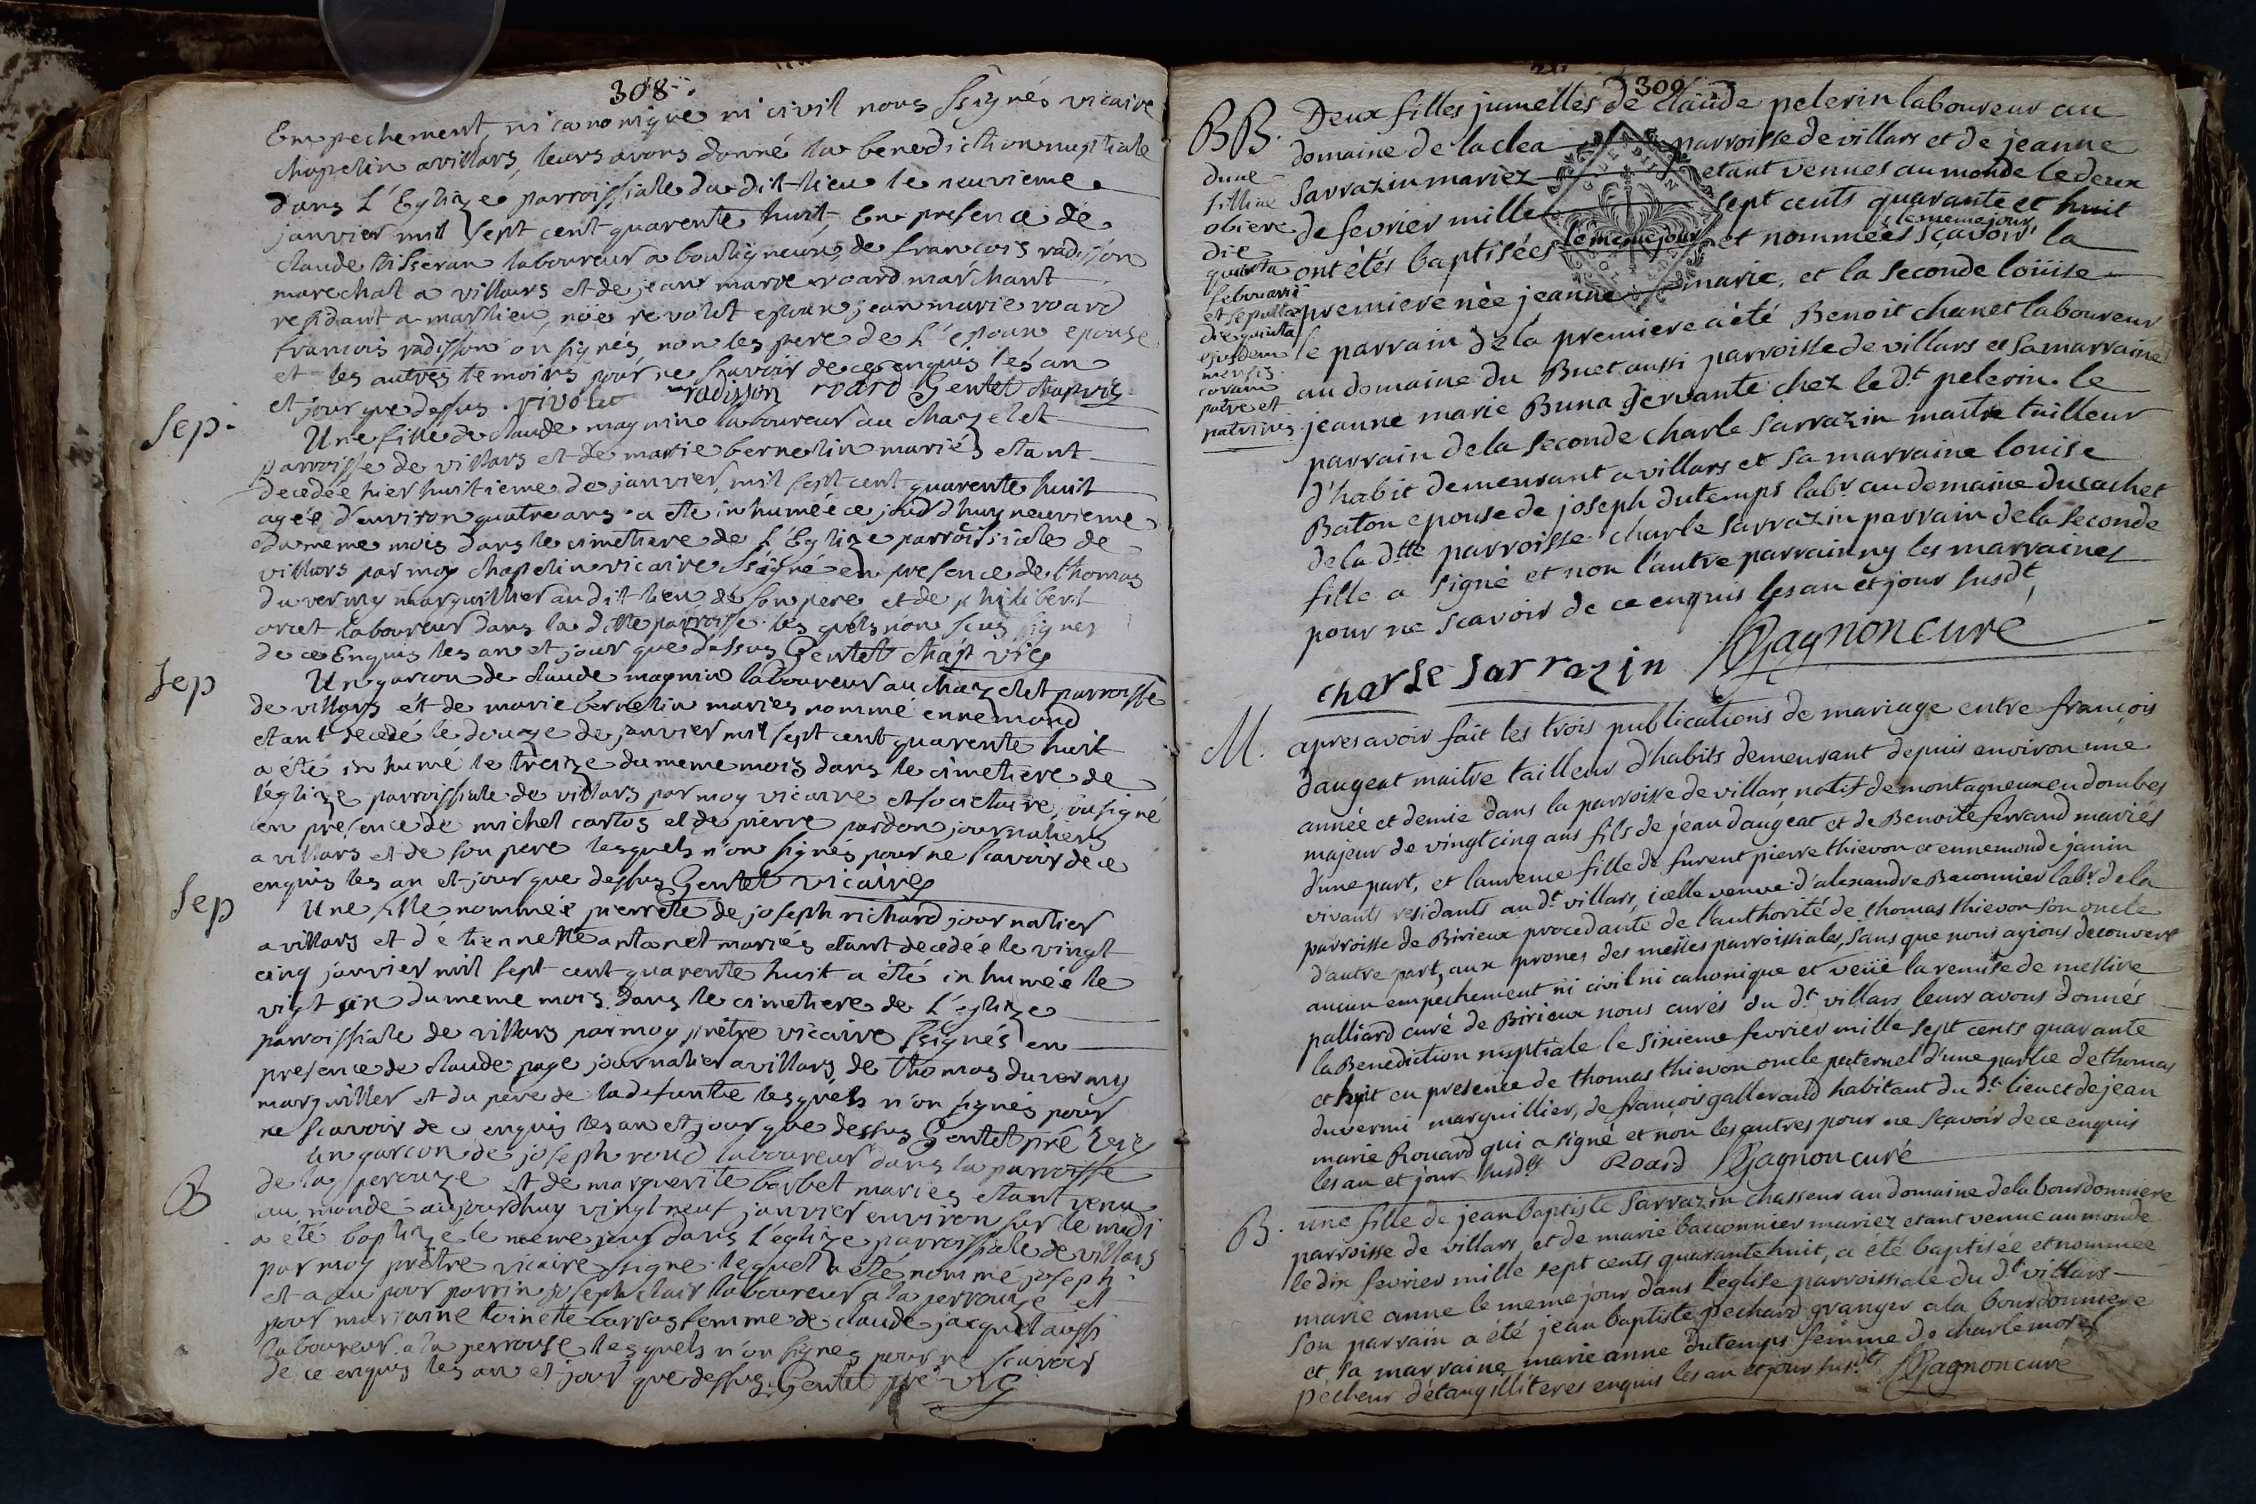 308
Empechement, ni canonique ni civil nous ssignés vicaire
chapelin a villars, leurs avons donné la benediction nuptiale
dans L'Eglize parroissiale du dit lieu le neuvieme
janvier mil sept cent quarente huit, En presence de
claude tisseran laboureur a bouligneux, de francois radisson
marechal a villars et de jean marie roard marchant
residant a marlieu, noë revolat epoux jean marie roard
francois radisson on signés non les pere de L'epoux epouse
et les autres temoins pour ne scavoir de ce enquis les an
et jour que dessus. rivolat radisson roard Gentet chap vic
Sep.
Une fille de claude magnin laboureur au chazelet
parroisse de villars et de marie bernelin mariés etant
decedée hier huitieme de janvier, mil sept cent quarente huit
agée d'environ quatre ans a ete inhumée ce jourd'huy neuvieme
du meme mois dans le cimetiere de L'Eglize parroissiale de
villars par moy chapelin vicaire ssigné en presence de thomas
duvermy marguillier au dit lieu de son pere et de philibert
laboureur dans la ditte parroisse. les quels non scus signer
de ce Enquis les an et jour que dessus Gentet chap vic
Sep
Un garcon de claude magnin laboureur au chazelet parroisse
de villars et de marie bernelin mariés nommé ennemond
etant decedé le douze de janvier mil sept cent quarente huit
a été inhumé le treize du meme mois dans le cimetiere de
l'eglize parroissiale de villars par moy vicaire et societaire ssigné
en presence de michel cartos et de pierre pardon journaliers
a villars et de son pere lesquels n'on signés pour ne scavoir de ce
enquis les an et jour que dessus Gentet vicaire
Sep
Une fille nommée pierrete de joseph richard journalier
a villars et d'etiennette antonet mariés etant decedée le vingt
cinq janvier mil sept cent quarente huit a été inhumée le
vigt six du meme mois dans le cimetiere de L'eglize
parroissiale de villars par moy prêtre vicaire ssignés en
presence de claude page journalier a villars, de thomas duvermy
marguillier et du pere de la defunte lesquels n'on signés pour
ne scavoir de ce enquis les an et jour que dessus Gentet pré vic
B
Un garcon de joseph roud laboureur dans la parroisse
de la perouze et de marguerite barbet mariés etant venu
au monde aujourdhuy vingt neuf janvier environ sur le midi
a été baptizé le meme jour dans l'eglize parroissiale de villars
par moy prêtre vicaire signe. lequel a eté nommé joseph
et a eu pour parrin joseph clair laboureur a la perrouze et
pour marraine toinette barras femme de claude jacquet aussi
laboureur a la perrouse lesquels n'on signes pour ne scavoir
de ce enquis les an et jour que dessus Gentet pre vic
309
BB.
Deux filles jumelles de claude pelerin laboureur au
domaine de la clea parroisse de villars et de jeanne
Sarrazin mariez etant venues au monde le deux
de fevrier mille sept cents quarante et huit
le meme jour
ont étés baptisées le meme jour et nommées sçavoir la
premiere née jeanne marie, et la seconde loüise
le parrain de la premiere a été Benoit chanet laboureur
au domaine du Buet aussi parroisse de villars et sa marraine
jeanne marie Buna servante chez le dt pelerin. le
parrain de la seconde charle Sarrazin maitre tailleur
d'habit demeurant a villars et sa marraine louise
Baton epouse de joseph dutemps labr au domaine du cachet
de la dtte parroisse. charle Sarrazin parrain de la seconde
fille a signé et non l'autre parrain ny les marraines
pour ne scavoir de ce enquis les an et jour susdt
charle sarrazin Gagnon curé
due
filliae
obiere
die
quarta
februarii
et sepultae
die quinta
ejusdem
mensis
coram
patre et
patrinis
M.
apres avoir fait les trois publications de mariage entre françois
daugeat maitre tailleur d'habits demeurant depuis environ une
année et demie dans la parroisse de villars natif de montagneux en dombes
majeur de vingt cinq ans fils de jean daugeat et de Benoite ferrand mariés
d'une part, et laurence fille de furent pierre thievon et ennemonde janin
vivants residants au dt villars, icelle veuve d'alexandre Baconnier labr de la
parroisse de Birieux procedante de l'authorité de thomas thievon son oncle
d'autre part, aux prones des messes parroissiales, sans que nous ayions decouvert
aucun empechement ni civil ni canonique et veüe la remise de messire
palliard curé de Birieux nous curés du dt villars leurs avons donnés
la Benediction nuptiale le sixieme fevrier mille sept cents quarante
et huit en presence de thomas thievon oncle paternel d'une part et de thomas
duvermi marguillier, de françois galleraud habitant du dt lieu et de jean
marie Rouard qui a signé et non les autres pour ne sçavoir de ce enquis
les an et jour susdts Roard Gagnon curé
B.
une fille de jean baptiste Sarrazin chasseur au domaine de la bourdonniere
parroisse de villars, et de marie baconnier mariez etant venue au monde
le dix fevrier mille sept cents quarante huit, a été baptisée et nommée
marie anne le meme jour dans l'eglise parroissiale du dt villars
son parrain a été jean baptiste pechard granger a la bourdonniere
et sa marraine, marie anne dutemps femme de charle morel
pecheur d'etang illiteres enquis les an et jour susdts Gagnon curé